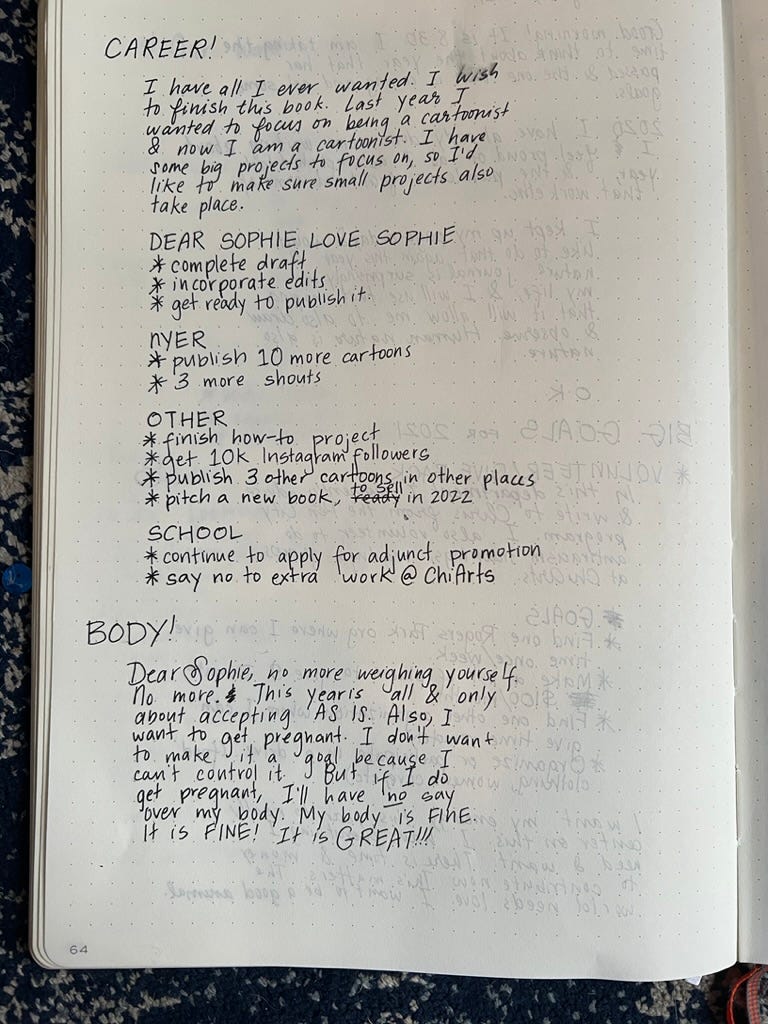 CAREER!
I have all I ever wanted. I wish
to finish this book. Last year I
wanted to focus on being a cartoonist
& now I am a cartoonist. I have
some big projects to focus on, so I'd
like to make sure small projects also
take place.
DEAR SOPHIE LOVE SOPHIE
* complete draft
* incorporate edits
* get ready to publish it.
NYER
* publish 10 more cartoons
* 3 more shouts
OTHER
* finish how-to project
* get 10K Instagram followers
* publish 3 other cartoons in other places
to sell
* pitch a new book, ready in 2022
SCHOOL
* continue to apply for adjunct promotion
* say no to extra work @ ChiArts
BODY!
Dear Sophie, no more weighing yourself.
No more. This year is all & only
about accepting AS IS. Also, I
want to get pregnant. I don't want
to make it a goal because I
can't control it. But if I do
get pregnant, I'll have no say
over my body. My body is FINE.
It is FINE! It is GREAT!!!
64